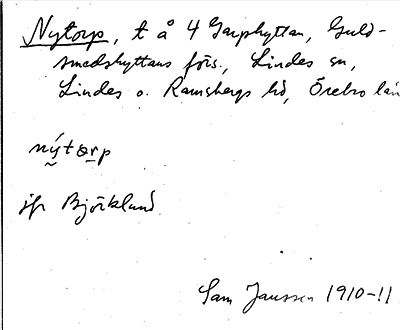 Nytorp, t å 4 Garphyttan, Guld-
smedshyttans förs., Lindes sn,
Lindes o. Ramsbergs hd, Örebro län
nýtorp
jfr Björklund
Sam Jansson 1910-11